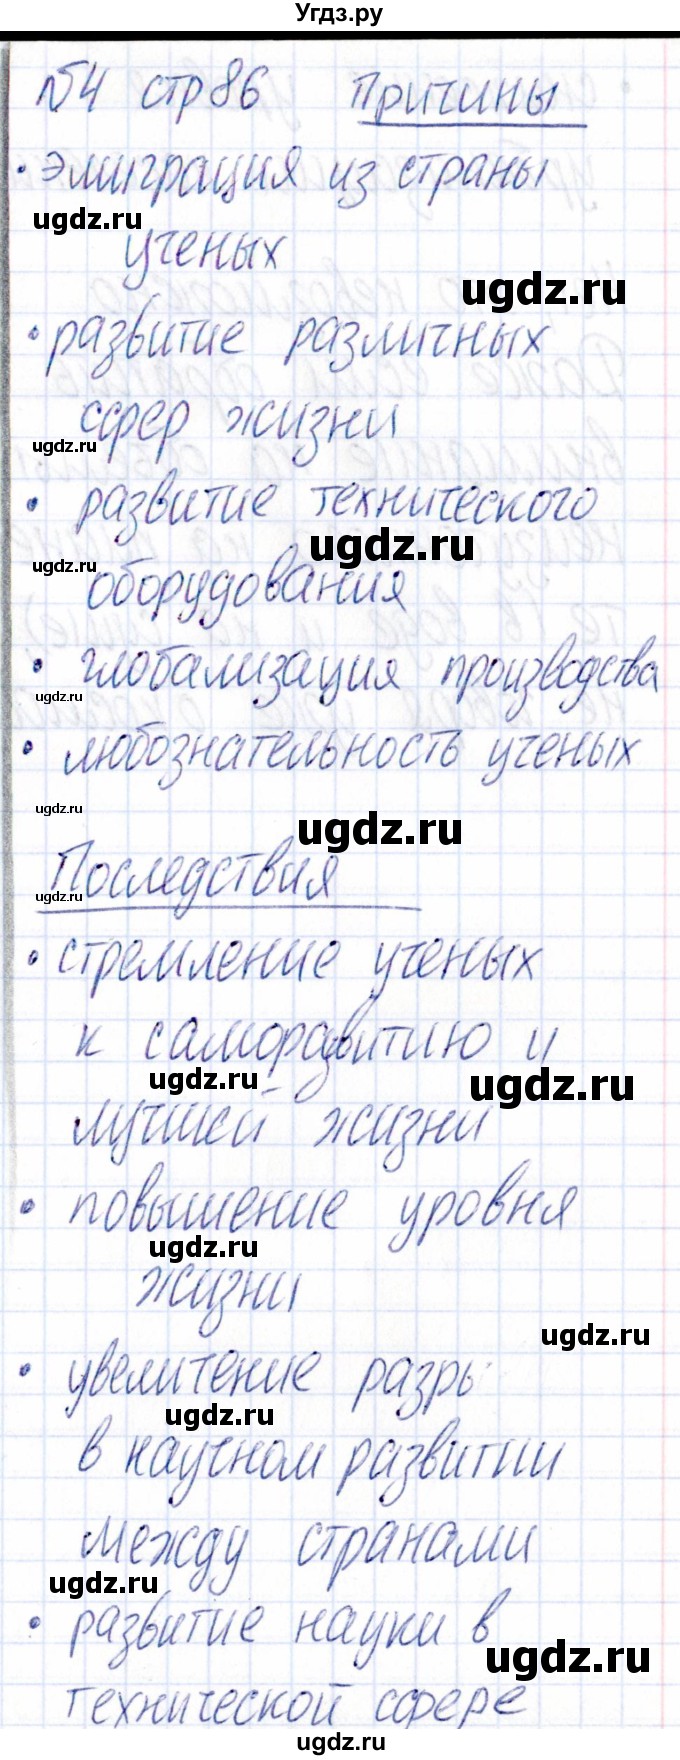 Угдз.ру
№4 стр 86 Причины
• эмиграция из страны
ugdz.ru
ученых
ugdz.ru
• развитие различных
сфер жизни
ugdz.ru
• развитие технического
ugdz.ru
ugdz.ru
оборудования
• глобализация производства
ugdz.ru
• любознательность ученых
ugdz.ru
ugdz.ru
Последствия
ugdz.ru
• стремление ученых
к саморазвитию и
ugdz.ru
ugdz.ru
лучшей жизни
• повышение уровня
ugdz.ru
жизни
ugdz.ru
• увелитение разры
ugdz.ru
в научном развитии
между странами
ugdz.ru
• развитие науки в
ugdz.ru
технической сфере
ugdz.ru